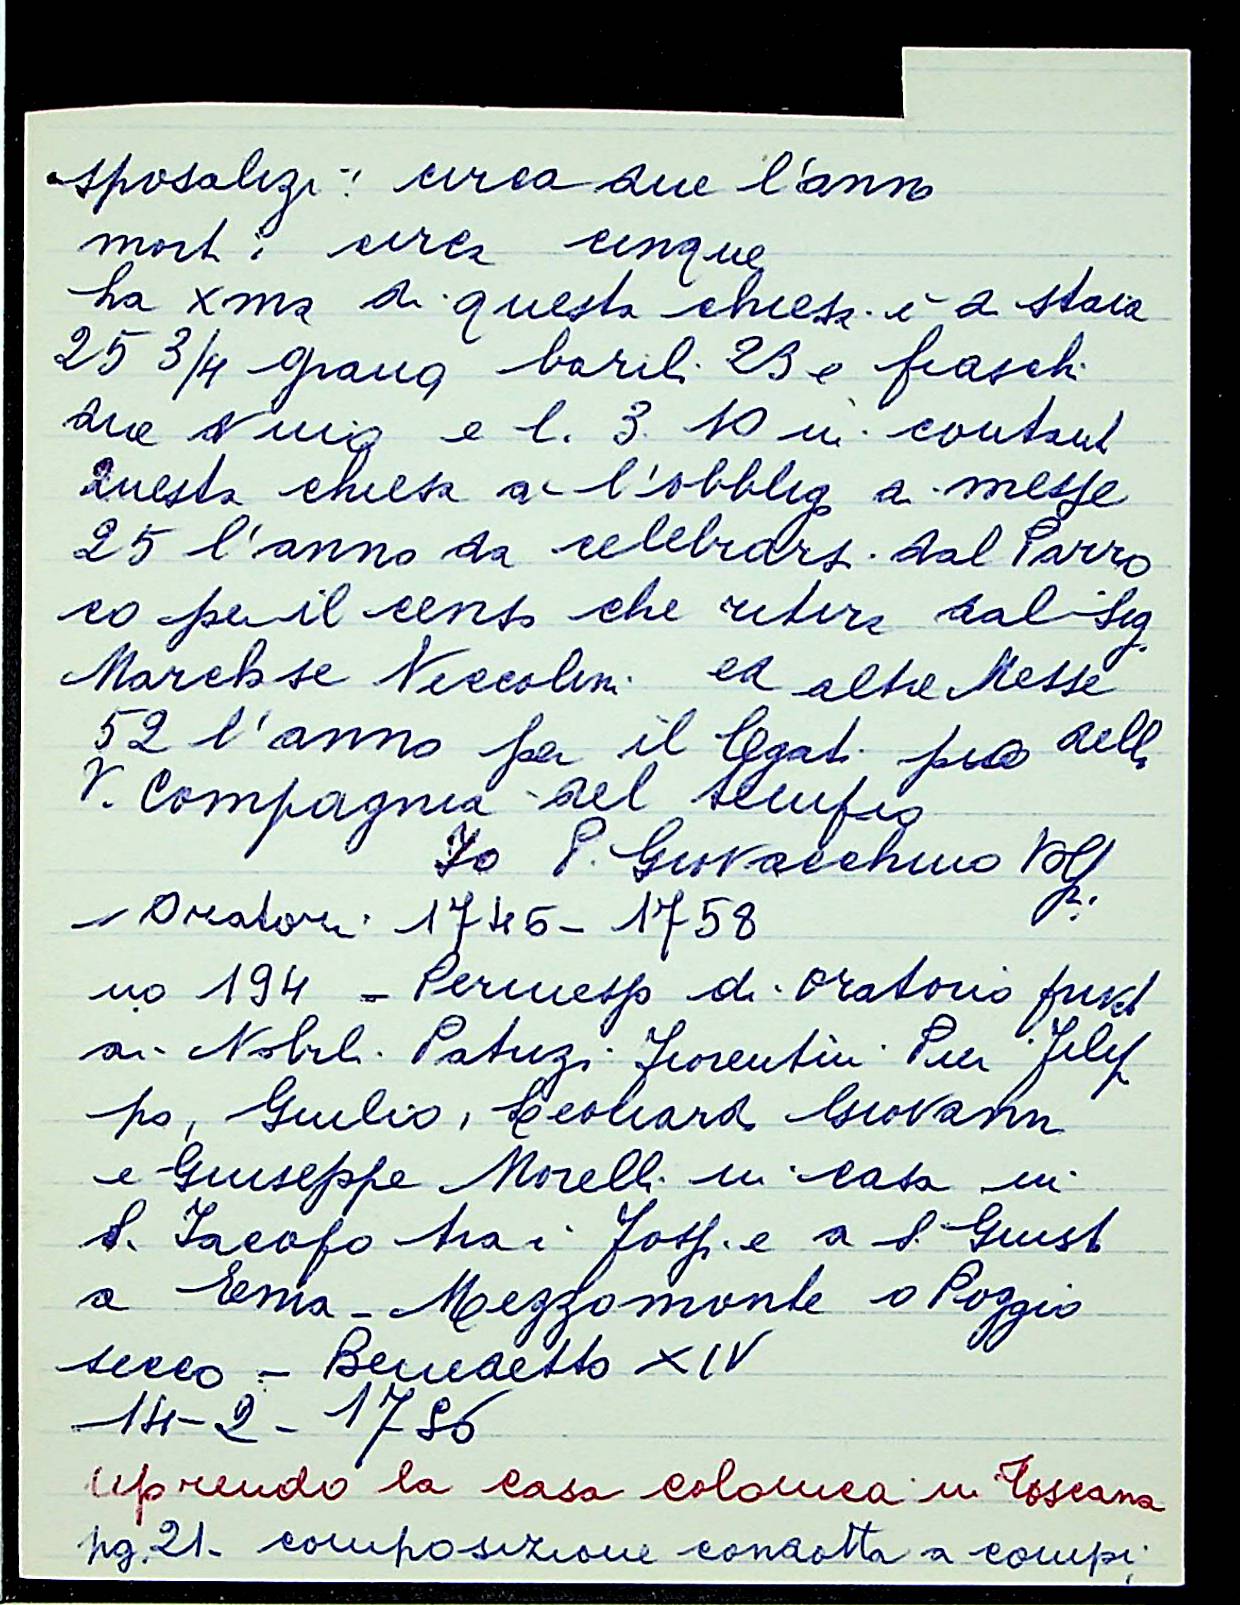 sposalizi: circa due l'anno
morti: circa cinque
La Xma di questa chiesa è di staia
25 3/4 grano barili 23 e fiaschi
due vino e l. 3. 10 in contanti
Questa chiesa a l'obbligo a messe
25 l'anno da celebrarsi dal Parro
co per il censo che ritira dal Sig.
Marchese Niccolini ed altre Messe
52 l'anno per il legato pio della
V. Compagnia del
Io P. Giovacchino
- Oratori 1745 - 1758
no 194 - Permesso di oratorio privato
ai Nobili Patrizi Fiorentini Pier Filip
po, Giulio, Leonardo Giovanni
e Giuseppe Morelli in casa in
S. Jacopo tra i Fossi e a S. Giusto
a Ema - Mezzomonte o Poggio
secco - Benedetto XIV
14-2-
riprendo la casa colonica in Toscana
pg. 21 - composizione condotta a compi